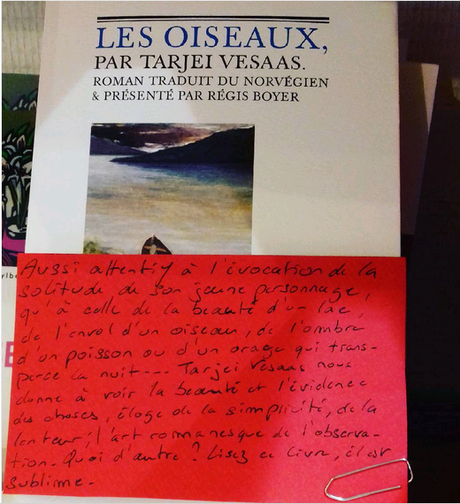 LES OISEAUX,
PAR TARJEI VESAAS.
ROMAN TRADUIT DU NORVÉGIEN
& PRÉSENTÉ PAR RÉGIS BOYER
Aussi attentif à l'évocation de la
solitude de son jeune personnage,
qu'à celle de la beauté d'un lac,
de l'envol d'un oiseau, de l'ombre
d'un poisson ou d'un orage qui trans-
perce la nuit---- Tarjei Vesaas nous
donne à voir la beauté et l'évidence
des choses, éloge de la simplicité, de la
lenteur, l'art romanesque de l'observa-
tion. Quoi d'autre? Lisez ce livre, il est
sublime.